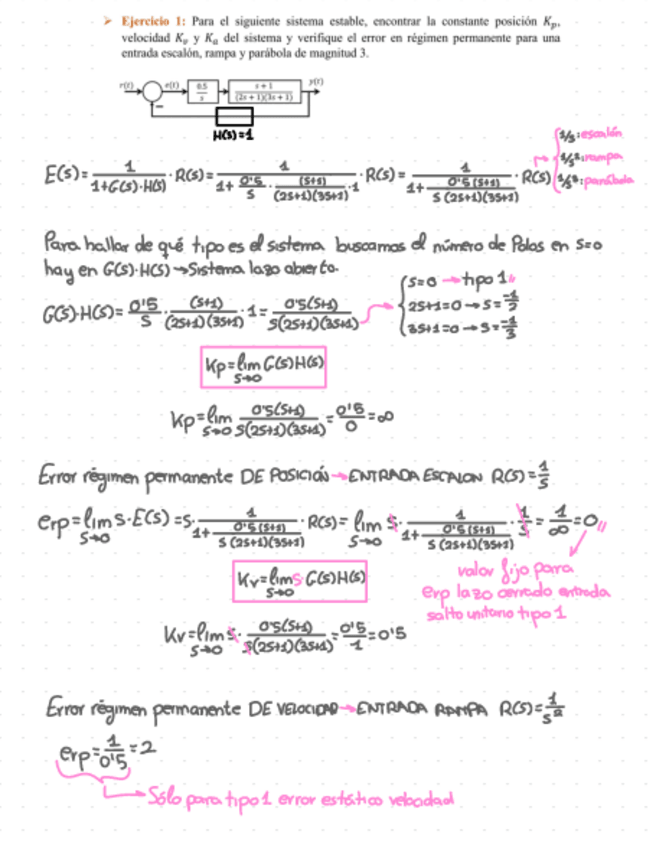 ➤ Ejercicio 1: Para el siguiente sistema estable, encontrar la constante posición K_p,
velocidad K_v y K_a del sistema y verifique el error en régimen permanente para una
entrada escalón, rampa y parábola de magnitud 3.
r(t) e(t) 0.5/s (s+1)/((2s+1)(3s+1)) y(t)
−
H(s)=1
1/s: escalón
1/s²: rampa
1/s³: parábola
E(s)= 1/(1+G(s)·H(s)) · R(s)= 1/(1+ 0'5/s · (s+1)/((2s+1)(3s+1)) · 1) · R(s)= 1/(1+ 0'5(s+1)/(s(2s+1)(3s+1))) · R(s)
Para hallar de qué tipo es el sistema buscamos el número de Polos en s=0
hay en G(s)·H(s) → Sistema lazo abierto.
G(s)·H(s)= 0'5/s · (s+1)/((2s+1)(3s+1)) · 1 = 0'5(s+1)/(s(2s+1)(3s+1))
s=0 → tipo 1
2s+1=0 → s=-1/2
3s+1=0 → s=-1/3
Kp=lim s→0 G(s)H(s)
Kp=lim s→0 0'5(s+1)/(s(2s+1)(3s+1)) = 0'5/0 = ∞
Error régimen permanente DE POSICIÓN → ENTRADA ESCALON R(s)=1/s
erp=lim s→0 s·E(s)=s· 1/(1+ 0'5(s+1)/(s(2s+1)(3s+1))) · R(s)= lim s→0 s· 1/(1+ 0'5(s+1)/(s(2s+1)(3s+1))) · 1/s = 1/∞ = 0
valor fijo para
erp lazo cerrado entrada
salto unitario tipo 1
Kv=lim s→0 s·G(s)H(s)
Kv=lim s→0 s· 0'5(s+1)/(s(2s+1)(3s+1)) = 0'5/1 = 0'5
Error régimen permanente DE VELOCIDAD → ENTRADA RAMPA R(s)=1/s²
erp=1/0'5=2
Sólo para tipo 1 error estático velocidad